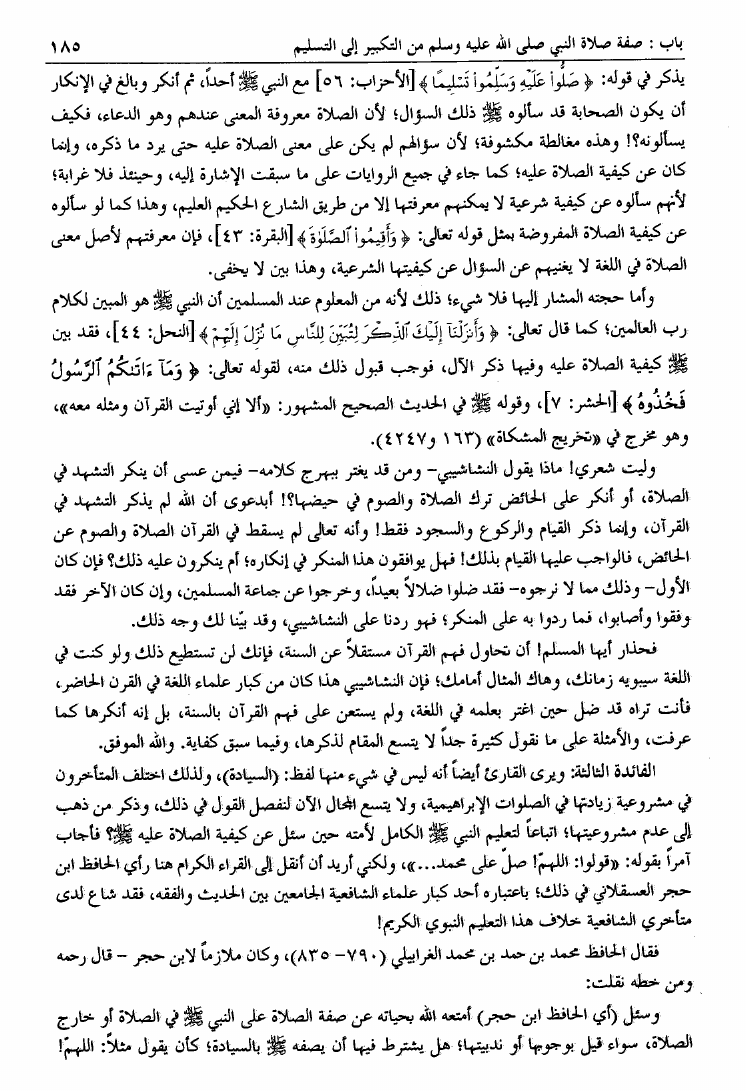 باب : صفة صلاة النبي صلى الله عليه وسلم من التكبير إلى التسليم ١٨٥
يذكر في قوله: ﴿ صَلُّوا۟ عَلَيْهِ وَسَلِّمُوا۟ تَسْلِيمًا ﴾ [الأحزاب: ٥٦] مع النبي ﷺ أحداً، ثم أنكر وبالغ في الإنكار
أن يكون الصحابة قد سألوه ﷺ ذلك السؤال؛ لأن الصلاة معروفة المعنى عندهم وهو الدعاء، فكيف
يسألونه؟! وهذه مغالطة مكشوفة؛ لأن سؤالهم لم يكن على معنى الصلاة عليه حتى يرد ما ذكره، وإنما
كان عن كيفية الصلاة عليه؛ كما جاء في جميع الروايات على ما سبقت الإشارة إليه، وحينئذ فلا غرابة؛
لأنهم سألوه عن كيفية شرعية لا يمكنهم معرفتها إلا من طريق الشارع الحكيم العليم، وهذا كما لو سألوه
عن كيفية الصلاة المفروضة بمثل قوله تعالى: ﴿ وَأَقِيمُوا۟ ٱلصَّلَوٰةَ ﴾ [البقرة: ٤٣]، فإن معرفتهم لأصل معنى
الصلاة في اللغة لا يغنيهم عن السؤال عن كيفيتها الشرعية، وهذا بين لا يخفى.
وأما حجته المشار إليها فلا شيء؛ ذلك لأنه من المعلوم عند المسلمين أن النبي ﷺ هو المبين لكلام
رب العالمين؛ كما قال تعالى: ﴿ وَأَنزَلْنَآ إِلَيْكَ ٱلذِّكْرَ لِتُبَيِّنَ لِلنَّاسِ مَا نُزِّلَ إِلَيْهِمْ ﴾ [النحل: ٤٤]، فقد بين
ﷺ كيفية الصلاة عليه وفيها ذكر الآل، فوجب قبول ذلك منه، لقوله تعالى: ﴿ وَمَآ ءَاتَىٰكُمُ ٱلرَّسُولُ
فَخُذُوهُ ﴾ [الحشر: ٧]، وقوله ﷺ في الحديث الصحيح المشهور: «ألا إني أوتيت القرآن ومثله معه»،
وهو مخرج في «تخريج المشكاة» (١٦٣ و٤٢٤٧).
وليت شعري! ماذا يقول النشاشيبي- ومن قد يغتر ببهرج كلامه- فيمن عسى أن ينكر التشهد في
الصلاة، أو أنكر على الحائض ترك الصلاة والصوم في حيضها؟! أبدعوى أن الله لم يذكر التشهد في
القرآن، وإنما ذكر القيام والركوع والسجود فقط! وأنه تعالى لم يسقط في القرآن الصلاة والصوم عن
الحائض، فالواجب عليها القيام بذلك! فهل يوافقون هذا المنكر في إنكاره؛ أم ينكرون عليه ذلك؟ فإن كان
الأول- وذلك مما لا نرجوه- فقد ضلوا ضلالاً بعيداً، وخرجوا عن جماعة المسلمين، وإن كان الآخر فقد
وفقوا وأصابوا، فما ردوا به على المنكر؛ فهو ردنا على النشاشيبي، وقد بيّنا لك وجه ذلك.
فحذار أيها المسلم! أن تحاول فهم القرآن مستقلاً عن السنة، فإنك لن تستطيع ذلك ولو كنت في
اللغة سيبويه زمانك، وهاك المثال أمامك؛ فإن النشاشيبي هذا كان من كبار علماء اللغة في القرن الحاضر،
فأنت تراه قد ضل حين اغتر بعلمه في اللغة، ولم يستعن على فهم القرآن بالسنة، بل إنه أنكرها كما
عرفت، والأمثلة على ما نقول كثيرة جداً لا يتسع المقام لذكرها، وفيما سبق كفاية. والله الموفق.
الفائدة الثالثة: ويرى القارئ أيضاً أنه ليس في شيء منها لفظ: (السيادة)، ولذلك اختلف المتأخرون
في مشروعية زيادتها في الصلوات الإبراهيمية، ولا يتسع المجال الآن لنفصل القول في ذلك، وذكر من ذهب
إلى عدم مشروعيتها؛ اتباعاً لتعليم النبي ﷺ الكامل لأمته حين سئل عن كيفية الصلاة عليه ﷺ؟ فأجاب
آمراً بقوله: «قولوا: اللهمّ! صلّ على محمد...»، ولكني أريد أن أنقل إلى القراء الكرام هنا رأي الحافظ ابن
حجر العسقلاني في ذلك؛ باعتباره أحد كبار علماء الشافعية الجامعين بين الحديث والفقه، فقد شاع لدى
متأخري الشافعية خلاف هذا التعليم النبوي الكريم!
فقال الحافظ محمد بن حمد بن محمد الغرابيلي (٧٩٠- ٨٣٥)، وكان ملازماً لابن حجر - قال رحمه
ومن خطه نقلت:
وسئل (أي الحافظ ابن حجر) أمتعه الله بحياته عن صفة الصلاة على النبي ﷺ في الصلاة أو خارج
الصلاة، سواء قيل بوجوبها أو ندبيتها؛ هل يشترط فيها أن يصفه ﷺ بالسيادة؛ كأن يقول مثلاً: اللهمّ!